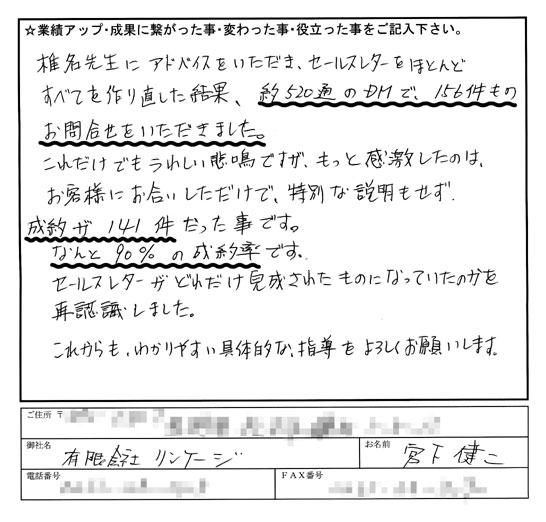 ☆業績アップ・成果に繋がった事・変わった事・役立った事をご記入下さい。
椎名先生に アドバイスをいただき、セールスレターをほとんど
すべてを作り直した結果、約520通のDMで、156件もの
お問合せをいただきました。
これだけでもうれしい悲鳴ですが、もっと感激したのは、
お客様にお会いしただけで、特別な説明もせず、
成約が 141件だった事です。
なんと 90% の成約率です。
セールスレターが どれだけ完成されたものになっていたのかを
再認識しました。
これからも、わかりやすい具体的な、指導をよろしくお願いします。
ご住所 〒
御社名
有限会社 リンケージ
お名前
宮下 健二
電話番号
FAX番号